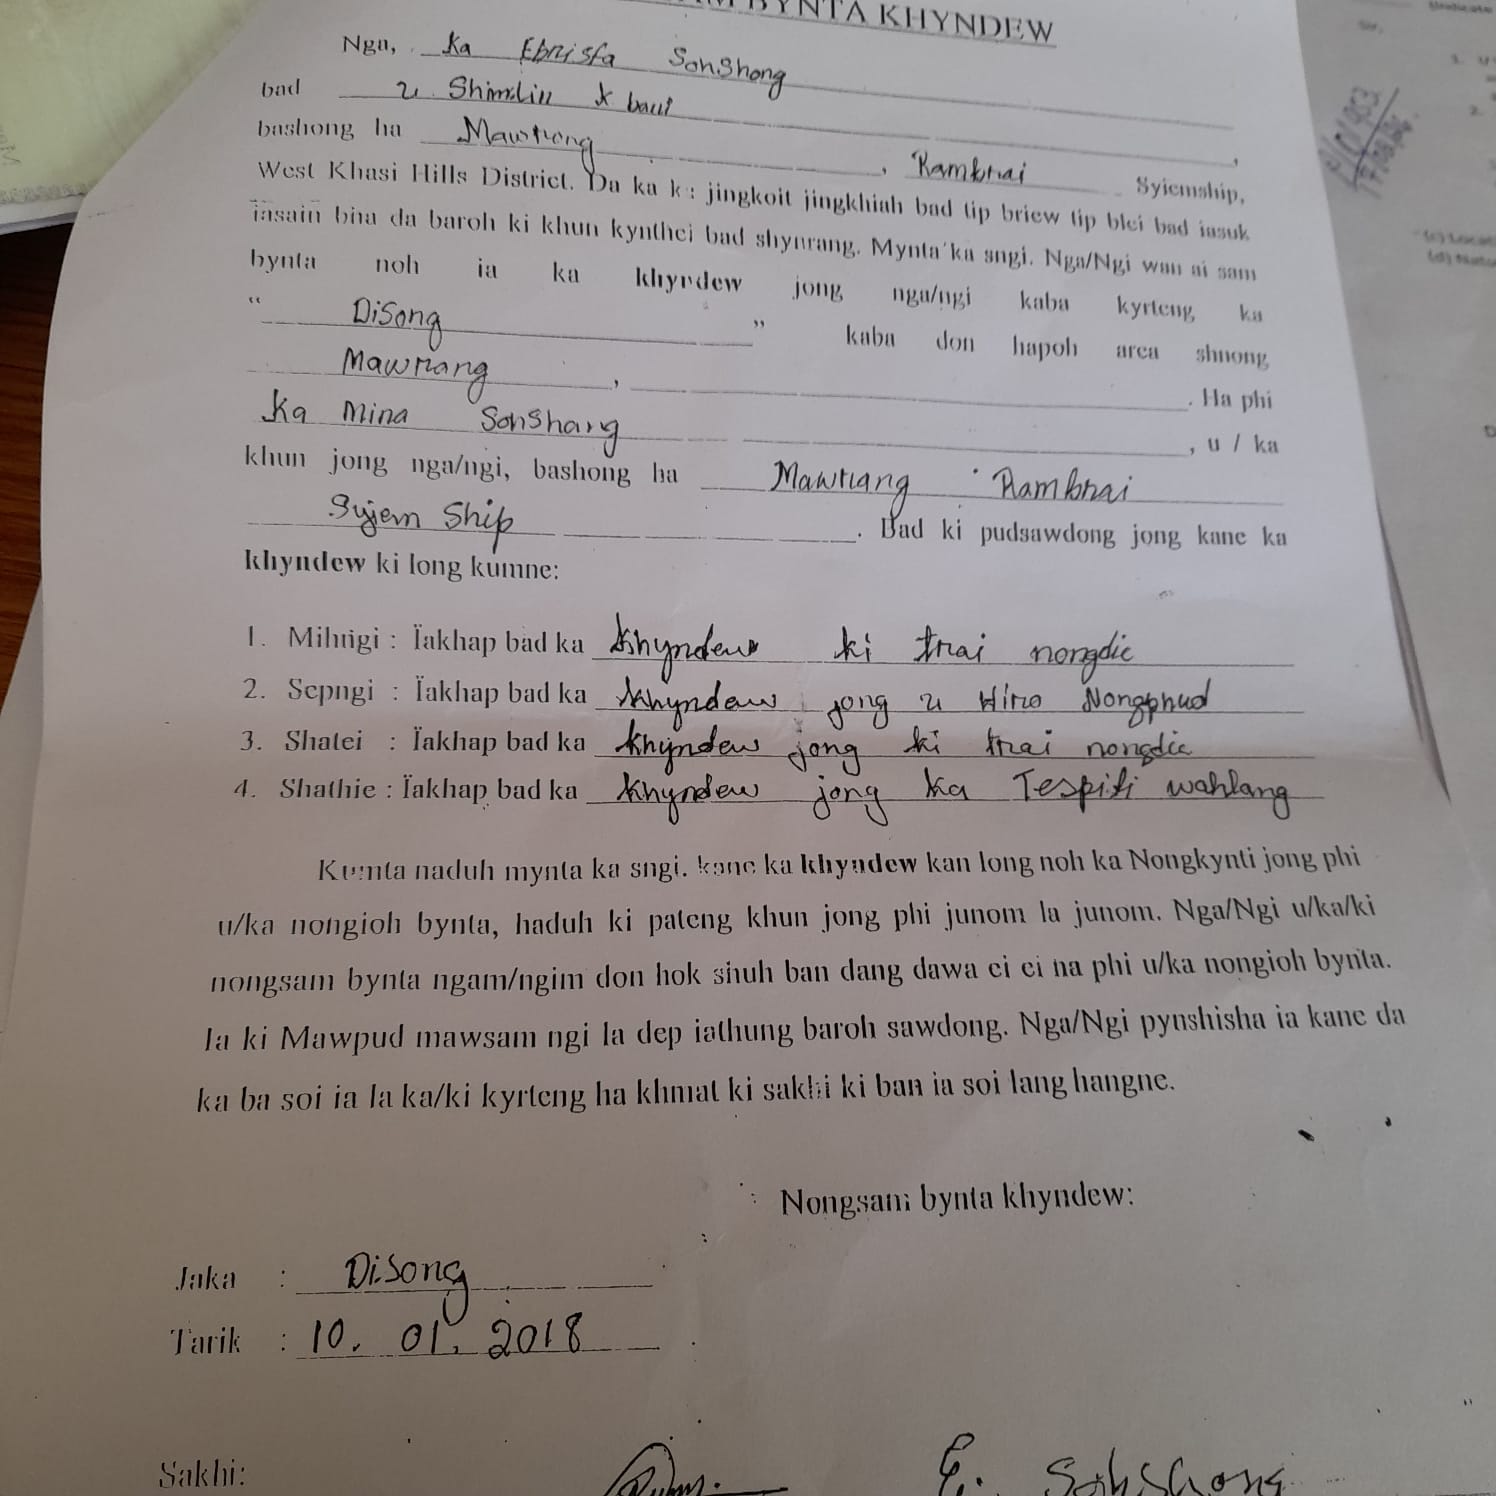 BYNTA KHYNDEW
Nga, Ka Ebrisfa Sonshong
bad u Shimlin
bashong ha Mawrang, Rambrai Syiemship,
West Khasi Hills District. Da ka ka jingkoit jingkhiah bad tip briew tip blei bad iasuk
ïasain bha da baroh ki khun kynthei bad shynrang. Mynta ka sngi. Nga/Ngi wan ai sam
bynta noh ia ka khyndew jong nga/ngi kaba kyrteng ka
" DiSong " kaba don hapoh area shnong
Mawrang, . Ha phi
Ka Mina Sonshang , u / ka
khun jong nga/ngi, bashong ha Mawrang Rambrai
Syiem Ship . Bad ki pudsawdong jong kane ka
khyndew ki long kumne:
1. Mihngi : Ïakhap bad ka khyndew ki trai nongdie
2. Sepngi : Ïakhap bad ka khyndew jong u Hiro Nongphud
3. Shatei : Ïakhap bad ka khyndew jong ki trai nongdie
4. Shathie : Ïakhap bad ka khyndew jong ka Tespiti wahlang
Kumta naduh mynta ka sngi. kane ka khyndew kan long noh ka Nongkynti jong phi
u/ka nongioh bynta, haduh ki pateng khun jong phi junom la junom. Nga/Ngi u/ka/ki
nongsam bynta ngam/ngim don hok shuh ban dang dawa ei ei na phi u/ka nongioh bynta.
Ia ki Mawpud mawsam ngi la dep iathung baroh sawdong. Nga/Ngi pynshisha ia kane da
ka ba soi ia la ka/ki kyrteng ha khmat ki sakhi ki ban ia soi lang hangne.
Nongsam bynta khyndew:
Jaka : DiSong
Tarik : 10. 01. 2018
Sakhi:
E. Sohshong